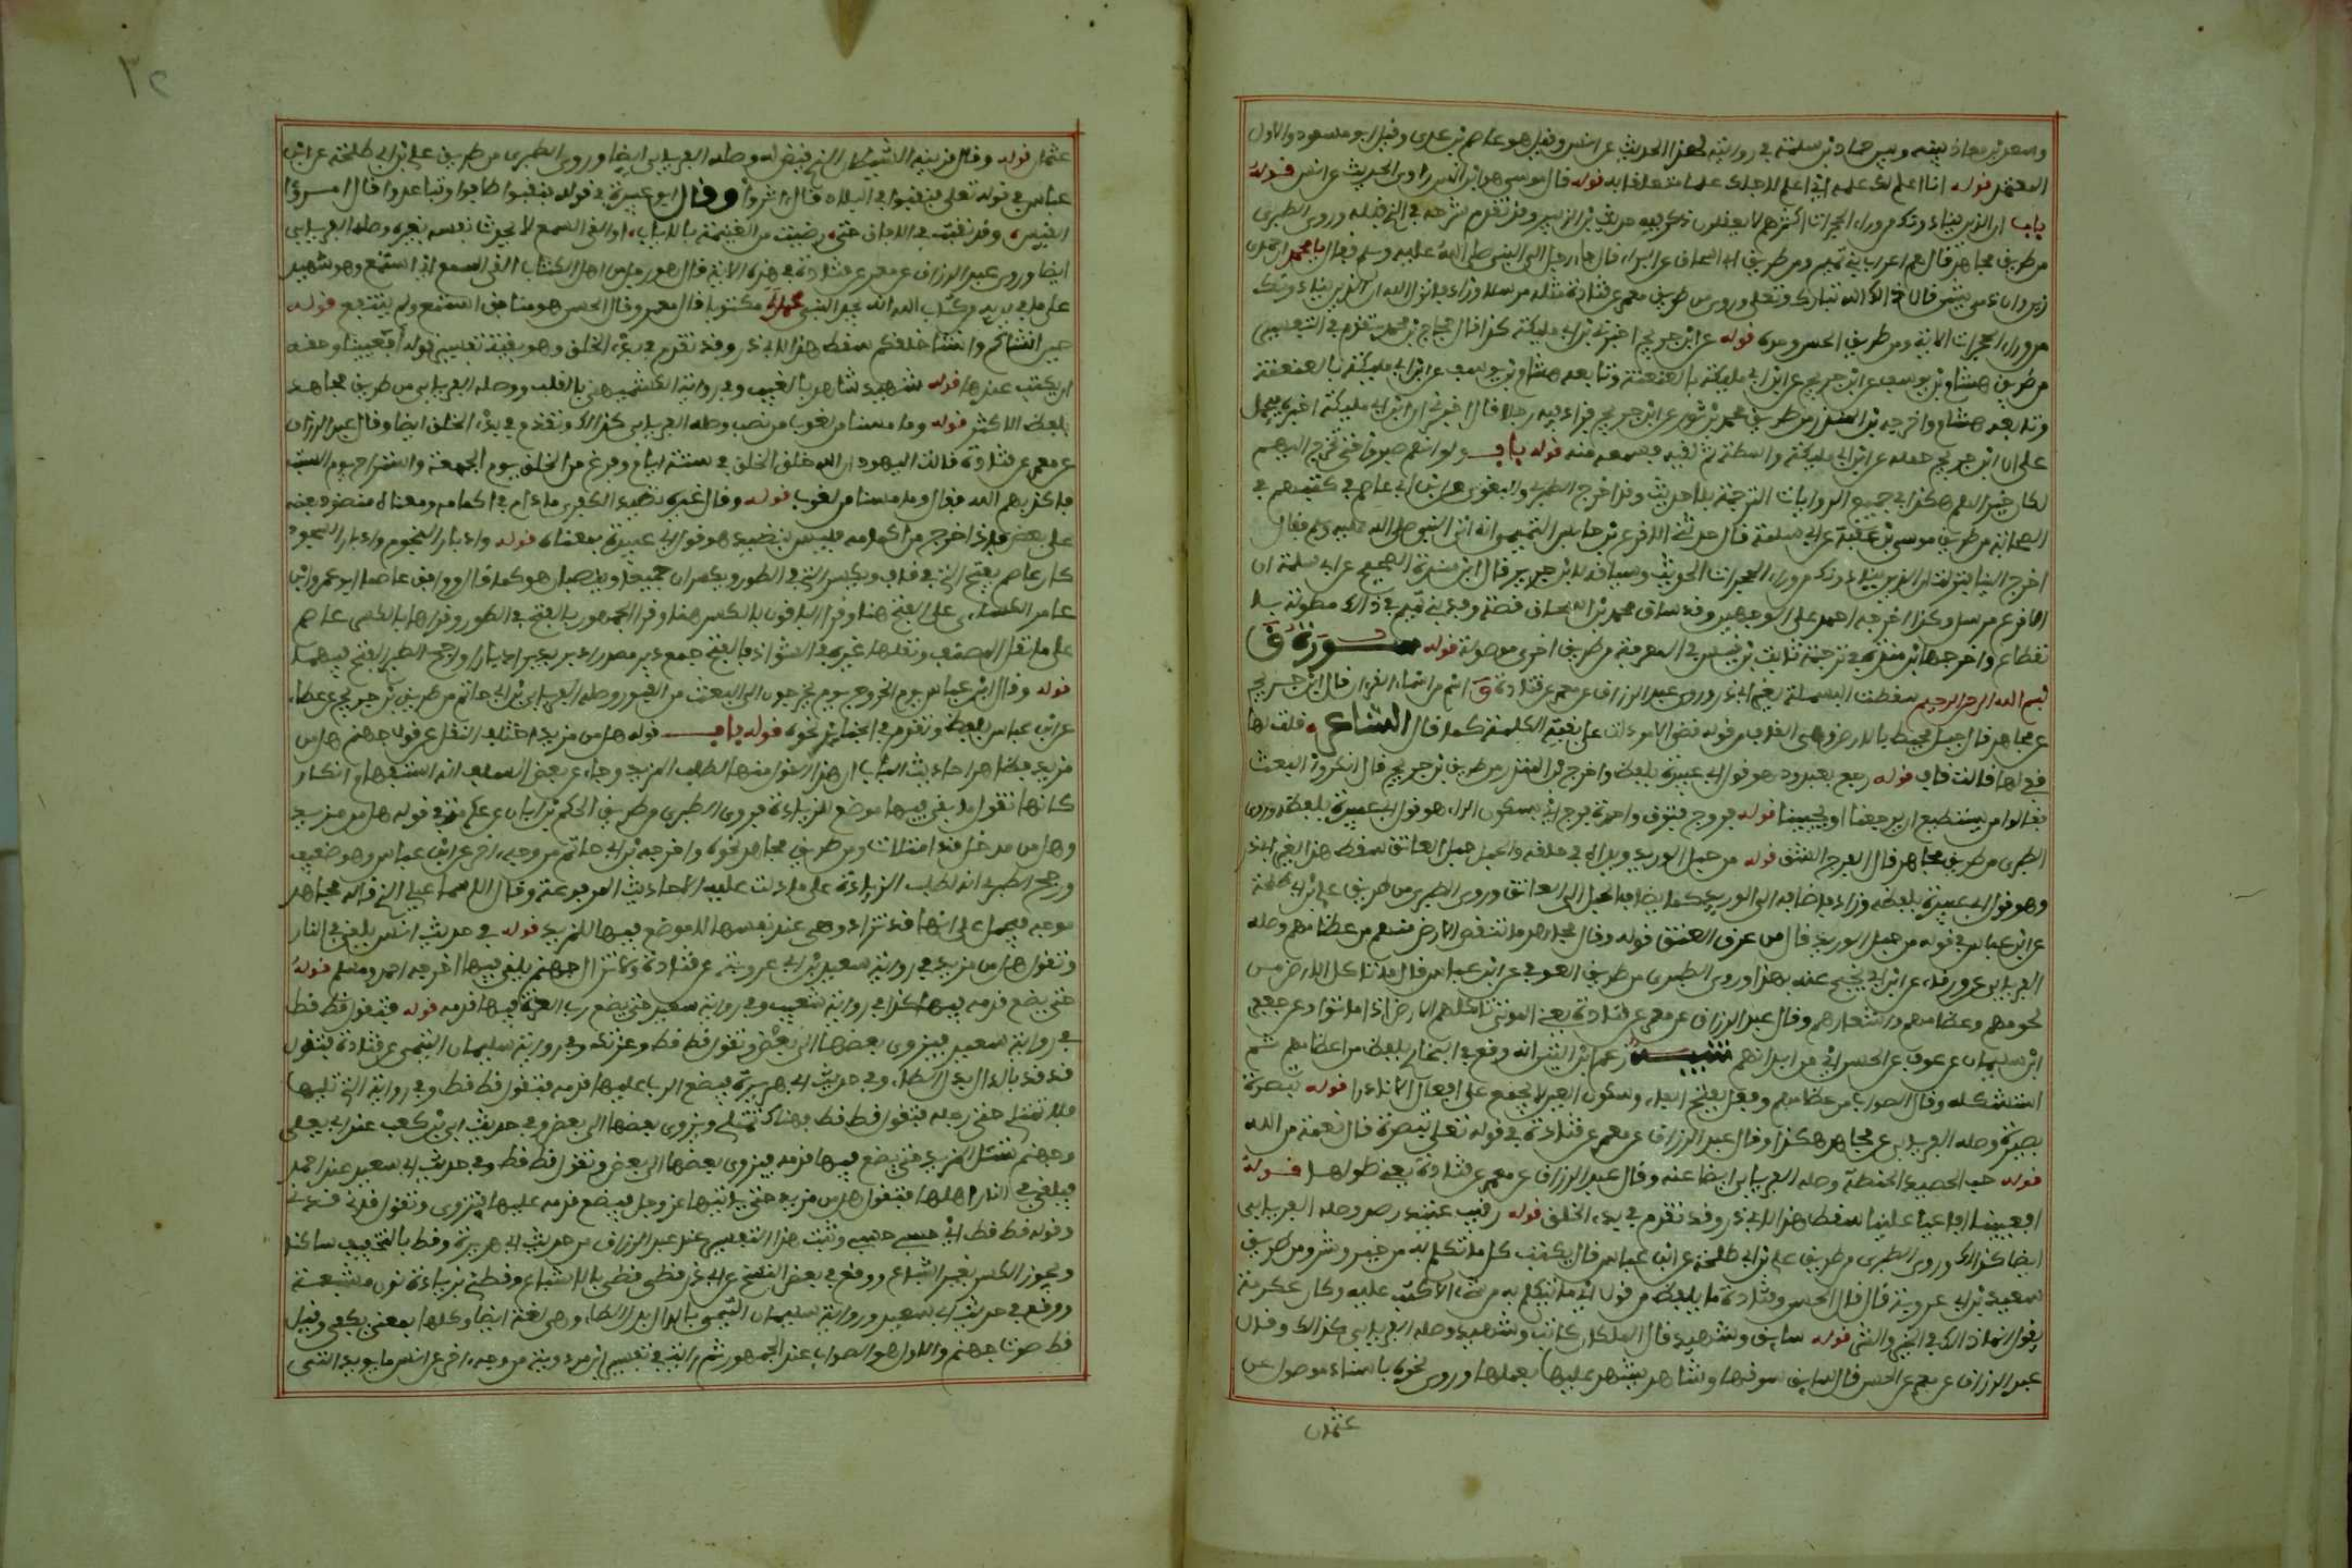 وسعد بن معاذ بينه وبين حماد بن سلمة في روايته لهذا الحديث عن انس وقيل هو عاصم بن عدي وقيل ابو مسعود والاول
المعتمد قوله انا اعلم لك علمه اي اعلم لاجلك علما متعلقا به قوله قال موسى هو ابن انس راوي الحديث عن انس قوله
باب ان الذين ينادونك من وراء الحجرات اكثرهم لا يعقلون ذكر فيه حديث ابن الزبير وقد تقدم شرحه في الذي قبله وروى الطبري
من طريق مجاهد قال هم اعراب بني تميم ومن طريق ابي اسحاق عن البراء قال جاء رجل الى النبي صلى الله عليه وسلم فقال يا محمد ان حمدي
زين وان ذمي شين فقال ذاك الله تبارك وتعلى وروى من طريق معمر عن قتادة مثله مرسلا وزاد فانزل الله ان الذين ينادونك
من وراء الحجرات الاية ومن طريق الحسن نحوه قوله عن ابن جريج اخبرني ابن ابي مليكة كذا قال حجاج بن محمد وتقدم في التفسير
من طريق هشام بن يوسف عن ابن جريج عن ابن ابي مليكة بالعنعنة وتابعه هشام بن يوسف عن ابن ابي مليكة بالعنعنة
وتابعه هشام واخرجه ابن المنذر من طريق محمد بن ثور عن ابن جريج فزاد فيه رجلا قال اخبرني رجل ان ابن ابي مليكة اخبره فيحمل
على ان ابن جريج حمله عن ابن ابي مليكة بواسطة ثم لقيه فسمعه منه قوله باب ولو انهم صبروا حتى تخرج اليهم
لكان خيرا لهم هكذا في جميع الروايات الترجمة بلا حديث وقد اخرج الطبري والبغوي وابن ابي عاصم في كتبهم في
الصحابة من طريق موسى بن عقبة عن ابي سلمة قال حدثني الاقرع بن حابس التميمي انه اتى النبي صلى الله عليه وسلم فقال
اخرج الينا فنزلت ان الذين ينادونك من وراء الحجرات الحديث وسياقه لابن جرير قال ابن مندة الصحيح عن ابي سلمة ان
الاقرع مرسل وكذا اخرجه احمد على الوجهين وقد ساق محمد بن اسحاق قصة وفد بني تميم في ذلك مطولة بلا
نقطاع واخرجها ابن مندة في ترجمة ثابت بن قيس في المعرفة من طريق اخرى موصولة قوله سورة ق
بسم الله الرحمن الرحيم سقطت البسملة لغير ابي ذر وروى عبد الرزاق عن معمر عن قتادة ق اسم من اسماء القرءان قال ابن جريج
عن مجاهد قال جبل محيط بالارض وهي القاف من قوله قضى الامر دلت على بقية الكلمة كما قال الشاعر قلت لها
قفي لها فقالت قاف قوله رجع بعيد رد هو قول ابي عبيدة بلفظه واخرج ابن المنذر من طريق ابن جريج قال انكروا البعث
فقالوا من يستطيع ان يرجعنا او يحيينا قوله فروج فتوق واحدها فرج اي بسكون الراء هو قول ابي عبيدة بلفظه وروى
الطبري من طريق مجاهد قال الفرج الشق قوله من حبل الوريد وريداه في حلقه والحبل حبل العاتق سقط هذا لغير ابي ذر
وهو قول ابي عبيدة بلفظه وزاد فاضافه الى الوريد كما يضاف الحبل الى العاتق وروى الطبري من طريق علي بن ابي طلحة
عن ابن عباس في قوله من حبل الوريد قال من عرق العنق قوله وقال مجاهد ما تنقص الارض منهم من عظامهم وصله
الفريابي عن ورقاء عن ابن ابي نجيح عنه بهذا وروى الطبري من طريق العوفي عن ابن عباس قال ما تاكل الارض من
لحومهم وعظامهم واشعارهم وقال عبد الرزاق عن معمر عن قتادة يعني الموتى تاكلهم الارض اذا ماتوا وعن جعفر
ابن سليمان عن عوف عن الحسن اي من ابدانهم تنبيه زعم ابن التين انه وقع في البخاري بلفظ من اعظامهم ثم
استشكله وقال الصواب من عظامهم وفعل بفتح الفاء وسكون العين لا يجمع على افعال الا نادرا قوله تبصرة
بصيرة وصله الفريابي عن مجاهد هكذا وقال عبد الرزاق عن معمر عن قتادة في قوله تعلى تبصرة قال نعمة من الله
قوله حب الحصيد الحنطة وصله الفريابي ايضا عنه وقال عبد الرزاق عن معمر عن قتادة يعني طولها قوله
افعيينا افاعيا علينا سقط هذا لابي ذر وقد تقدم في بدء الخلق قوله رقيب عتيد رصد وصله الفريابي
ايضا كذلك وروى الطبري من طريق علي بن ابي طلحة عن ابن عباس قال يكتب كل ما تكلم به من خير وشر ومن طريق
سعيد بن ابي عروبة قال قال الحسن وقتادة ما يلفظ من قول اي ما يتكلم به من شيء الا كتب عليه وكان عكرمة
يقول انما ذلك في الخير والشر قوله سائق وشهيد قال الملكان كاتب وشهيد وصله الفريابي كذلك وقال
عبد الرزاق عن معمر عن الحسن قال سائق يسوقها وشاهد يشهد عليها بعملها وروى نحوه باسناد موصول عن
عثمان
عثمان قوله وقال قرينه الشيطان الذي قيض له وصله الفريابي ايضا وروى الطبري من طريق علي بن ابي طلحة عن ابن
عباس في قوله تعلى فنقبوا في البلاد قال اثروا وقال ابو عبيدة في قوله فنقبوا طافوا وتباعدوا قال امرؤ
القيس وقد نقبت في الافاق حتى رضيت من الغنيمة بالاياب او القى السمع لا يحدث نفسه بغيره وصله الفريابي
ايضا وروى عبد الرزاق عن معمر عن قتادة في هذه الاية قال هو رجل من اهل الكتاب القى السمع اي استمع وهو شهيد
على ما في يديه من كتاب الله انه يجد النبي محمدا مكتوبا قال معمر وقال الحسن هو منافق استمع ولم ينتفع قوله
حين انشاكم وانشا خلقكم سقط هذا لابي ذر وقد تقدم في بدء الخلق وهو بقية تفسير قوله افعيينا وحقه
ان يكتب عندها قوله شهيد شاهد بالغيب وفي رواية الكشميهني بالقلب ووصله الفريابي من طريق مجاهد
بلفظ الاكثر قوله وما مسنا من لغوب من نصب وصله الفريابي كذلك وتقدم في بدء الخلق ايضا وقال عبد الرزاق
عن معمر عن قتادة قالت اليهود ان الله خلق الخلق في ستة ايام وفرغ من الخلق يوم الجمعة واستراح يوم السبت
فاكذبهم الله فقال وما مسنا من لغوب قوله وقال غيره نضيد الكفرى ما دام في اكمامه ومعناه منضود بعضه
على بعض فاذا خرج من اكمامه فليس بنضيد هو قول ابي عبيدة بمعناه قوله وادبار النجوم وادبار السجود
كان عاصم يفتح التي في قاف ويكسر التي في الطور ويكسران جميعا وينصبان هو كما قال ووافق عاصما ابو عمرو وابن
عامر والكسائي على الفتح هنا وقرا الباقون بالكسر هنا وقرا الجمهور بالفتح في الطور وقراها بالكسر عاصم
على ما نقل المصنف ونقلها غيره في الشواذ فالفتح جمع دبر والكسر مصدر ادبر يدبر ادبارا ورجح الطبري الفتح فيهما
قوله وقال ابن عباس يوم الخروج يوم يخرجون الى البعث من القبور وصله ابن ابي حاتم من طريق ابن جريج عن عطاء
عن ابن عباس بلفظه وتقدم في الجنائز نحوه قوله باب قوله هل من مزيد اختلف النقل عن قول جهنم هل من
مزيد فظاهر احاديث الباب ان هذا القول منها لطلب المزيد وجاء عن بعض السلف انه استفهام انكار
كانها تقول ما بقي فيها موضع للزيادة فروى الطبري من طريق الحكم بن ابان عن عكرمة في قوله هل من مزيد
وهل من مدخل قد امتلات ومن طريق مجاهد نحوه واخرجه ابن ابي حاتم من وجه اخر عن ابن عباس وهو ضعيف
ورجح الطبري انه لطلب الزيادة على ما دلت عليه الاحاديث المرفوعة وقال الاسماعيلي الذي قاله مجاهد
موجه فيحمل على انها قد تزاد وهي عند نفسها لا موضع فيها للمزيد قوله في حديث انس يلقى في النار
وتقول هل من مزيد في رواية سعيد بن ابي عروبة عن قتادة لا تزال جهنم يلقى فيها اخرجه احمد ومسلم قوله
حتى يضع قدمه فيها كذا في رواية شعبة وفي رواية سعيد حتى يضع رب العزة فيها قدمه قوله فتقول قط قط
في رواية سعيد فينزوي بعضها الى بعض وتقول قط قط وعزتك وفي رواية سليمان التيمي عن قتادة فتقول
قد قد بالدال بدل الطاء وفي حديث ابي هريرة فيضع الرب عليها قدمه فتقول قط قط وفي الرواية التي تليها
فلا تمتلي حتى يضع رجله فتقول قط قط فهناك تمتلي ويزوى بعضها الى بعض وفي حديث ابي بن كعب عند ابي يعلى
وجهنم تسئل المزيد حتى يضع فيها قدمه فيزوي بعضها الى بعض وتقول قط قط وفي حديث ابي سعيد عند احمد
فيلقى في النار اهلها فتقول هل من مزيد حتى ياتيها عز وجل فيضع قدمه عليها فتنزوي وتقول قدني قدني
وقوله قط قط اي حسبي حسبي وثبت هذا التفسير عند عبد الرزاق من حديث ابي هريرة وقط بالتخفيف ساكنا
ويجوز الكسر بغير اشباع ووقع في بعض النسخ عن ابي ذر قطي قطي بالاشباع وقطني بزيادة نون مشبعة
ووقع في حديث ابي سعيد ورواية سليمان التيمي بالدال بدل الطاء وهي لغة ايضا وكلها بمعنى يكفي وقيل
قط صوت جهنم والاول هو الصواب عند الجمهور ثم رايت في تفسير ابن مردويه من وجه اخر عن انس ما يويد الذي